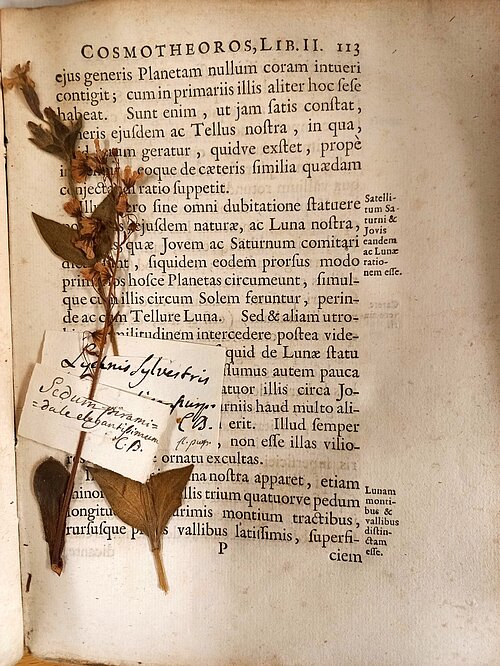 COSMOTHEOROS, LIB. II. 113
ejus generis Planetam nullum coram intueri
contigit; cum in primariis illis aliter hoc sese
habeat. Sunt enim, ut jam satis constat,
neris ejusdem ac Tellus nostra, in qua,
rum geratur, quidve exstet, propè
eoque de cæteris similia quædam
conjectandi ratio suppetit.
ro sine omni dubitatione statuere
ejusdem naturæ, ac Luna nostra,
quæ Jovem ac Saturnum comitari
nt, siquidem eodem prorsus modo
prim os hosce Planetas circumeunt, simul-
que cum illis circum Solem feruntur, perin-
de ac cum Tellure Luna. Sed & aliam utro-
militudinem intercedere postea vide-
quid de Lunæ statu
sumus autem pauca
atuor illis circa Jo-
rniis haud multo ali-
erit. Illud semper
, non esse illas vilio-
ornatu excultas.
na nostra apparet, etiam
minor llis trium quatuorve pedum
longitu urimis montium tractibus,
rursusque p s vallibus latissimis, superfi-
P ciem
Satelli-
tum Sa-
turni &
Jovis
eandem
ac Lunæ
ratio-
nem esse.
Lunam
monti-
bus &
vallibus
distin-
ctam
esse.
Lychnis Sylvestris
purp.
C.B.
fl. purp.
Sedum pirami-
=dale elegantissimum
C.B.